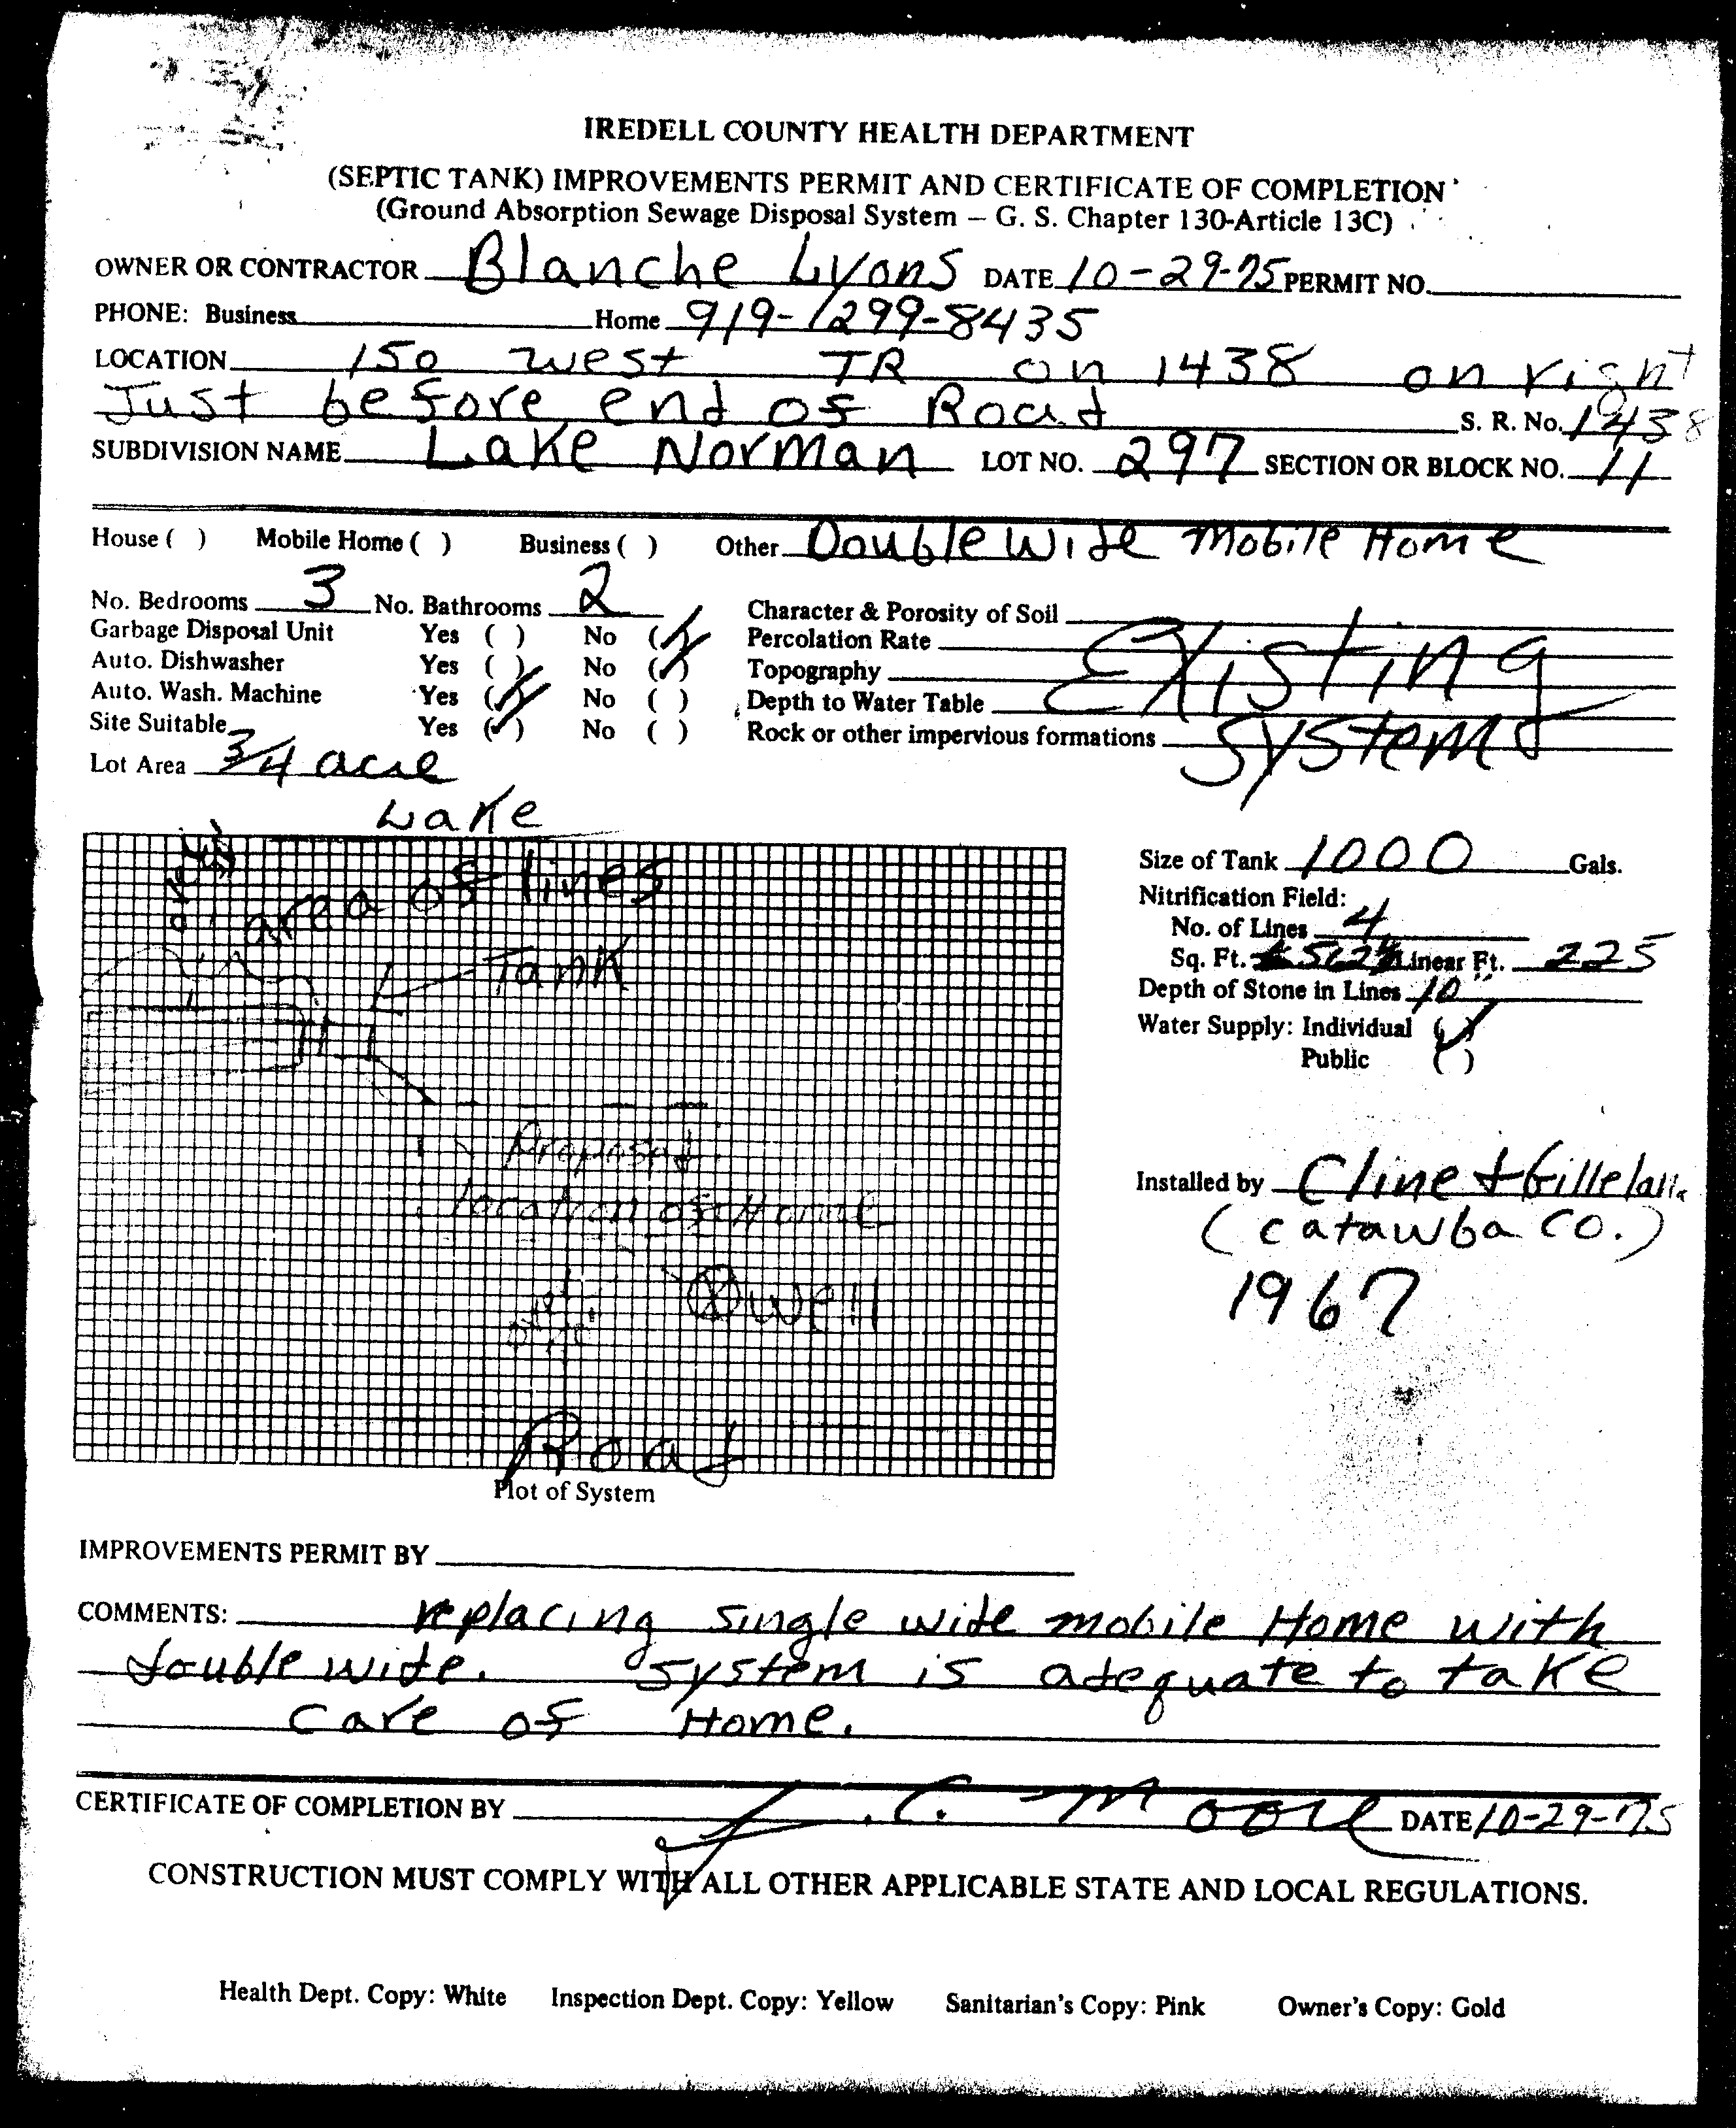 IREDELL COUNTY HEALTH DEPARTMENT
(SEPTIC TANK) IMPROVEMENTS PERMIT AND CERTIFICATE OF COMPLETION
(Ground Absorption Sewage Disposal System – G. S. Chapter 130-Article 13C)
OWNER OR CONTRACTOR Blanche Lyons DATE 10-29-75 PERMIT NO.
PHONE: Business Home 919-1299-8435
LOCATION 150 west TR on 1438 on right
Just before end of Road S. R. No. 1438
SUBDIVISION NAME Lake Norman LOT NO. 297 SECTION OR BLOCK NO. 11
House ( ) Mobile Home ( ) Business ( ) Other Double Wide Mobile Home
No. Bedrooms 3 No. Bathrooms 2
Garbage Disposal Unit Yes ( ) No (✓)
Auto. Dishwasher Yes ( ) No (✓)
Auto. Wash. Machine Yes (✓) No ( )
Site Suitable Yes (✓) No ( )
Lot Area 3/4 acre
Character & Porosity of Soil
Percolation Rate
Topography
Depth to Water Table
Rock or other impervious formations
Existing
System
Lake
area of lines
Tank
Proposed
location of Home
well
Road
Plot of System
Size of Tank 1000 Gals.
Nitrification Field:
No. of Lines 4
Sq. Ft. Linear Ft. 225
Depth of Stone in Lines 10"
Water Supply: Individual (✓)
Public ( )
Installed by Cline +
(Catawba Co.)
1967
IMPROVEMENTS PERMIT BY
COMMENTS: replacing single wide mobile Home with
double wide. System is adequate to take
care of Home.
CERTIFICATE OF COMPLETION BY J. C. Moore DATE 10-29-75
CONSTRUCTION MUST COMPLY WITH ALL OTHER APPLICABLE STATE AND LOCAL REGULATIONS.
Health Dept. Copy: White Inspection Dept. Copy: Yellow Sanitarian's Copy: Pink Owner's Copy: Gold